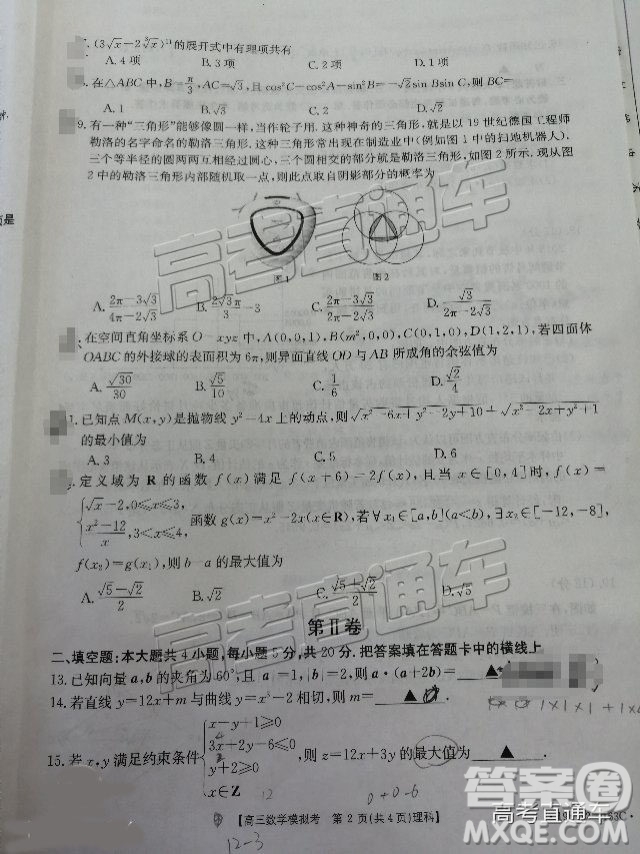 . (3√x-2∛x)¹¹的展开式中有理项共有
A. 4 项 B. 3 项 C. 2 项 D. 1 项
. 在△ABC 中, B=π/3, AC=√3, 且 cos²C-cos²A-sin²B=-√2 sin B sin C, 则 BC=
A. 1 B. √3 C. √2
9. 有一种“三角形”能够像圆一样，当作轮子用. 这种神奇的三角形，就是以 19 世纪德国工程师
勒洛的名字命名的勒洛三角形，这种三角形常出现在制造业中(例如图 1 中的扫地机器人).
三个等半径的圆两两互相经过圆心，三个圆相交的部分就是勒洛三角形，如图 2 所示. 现从图
2 中的勒洛三角形内部随机取一点，则此点取自阴影部分的概率为
图 1 图 2
A. (2π-3√3)/(4π-2√3) B. 2√3π/3-3 C. (2π-3√3)/(2π-2√3) D. √3/(2π-2√3)
在空间直角坐标系 O-xyz 中, A(0,0,1), B(m²,0,0), C(0,1,0), D(1,2,1), 若四面体
OABC 的外接球的表面积为 6π, 则异面直线 OD 与 AB 所成角的余弦值为
A. √30/30 B. √5/10 C. 1/6 D. √2/4
. 已知点 M(x,y) 是抛物线 y²=4x 上的动点, 则√(x²-6x+y²-2y+10)+√(x²-2x+y²+1)
的最小值为
A. 3 B. 4 C. 5 D. 6
. 定义域为 R 的函数 f(x) 满足 f(x+6)=2f(x), 且当 x∈[0,4]时, f(x)=
{√x-2, 0≤x≤3,
(x²-12)/x, 3<x≤4, 函数 g(x)=x²-2x(x∈R), 若∀x₁∈[a,b](a<b), ∃x₂∈[-12,-8],
f(x₂)=g(x₁), 则 b-a 的最大值为
A. (√5-√2)/2 B. √2 C. (√5+√2)/2 D. √5
第Ⅱ卷
二、填空题: 本大题共 4 小题, 每小题 5 分, 共 20 分. 把答案填在答题卡中的横线上
13. 已知向量 a,b 的夹角为 60°, 且|a|=1, |b|=2, 则 a·(a+2b)= ▲
14. 若直线 y=12x+m 与曲线 y=x³-2 相切, 则 m= ▲ .
1×1×1+1×
15. 若 x,y 满足约束条件{x-y+1≥0
3x+2y-6≤0
y+2≥0
x∈Z
, 则 z=12x+3y 的最大值为 ▲
12
0+0-6
【高三数学模拟考 第 2 页(共 4 页)理科】
12-3
高考直通车
高考直通车
答案圈
高考直通车